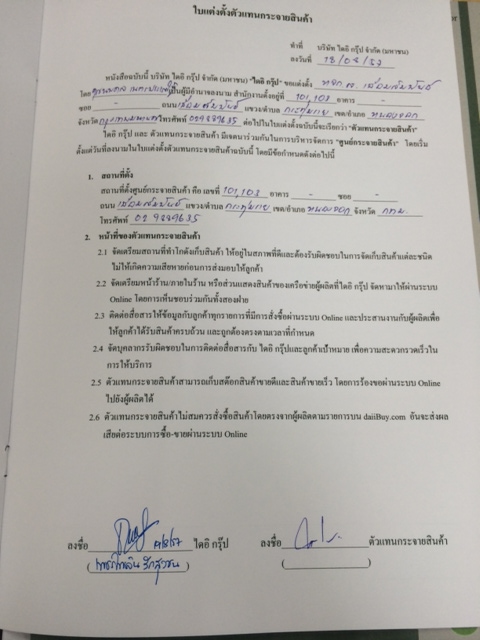 ใบแต่งตั้งตัวแทนกระจายสินค้า
ทำที่ บริษัท ไดอิ กรุ๊ป จำกัด (มหาชน)
ลงวันที่
หนังสือฉบับนี้ บริษัท ไดอิ กรุ๊ป จำกัด (มหาชน) "ไดอิ กรุ๊ป" ขอแต่งตั้ง หจก. เชื่อมสัมพันธ์
โดย เป็นผู้มีอำนาจลงนาม สำนักงานตั้งอยู่ที่ 101,103 อาคาร -
ซอย - ถนน เชื่อมสัมพันธ์ แขวง/ตำบล กระทุ่มราย เขต/อำเภอ หนองจอก
จังหวัด กรุงเทพมหานคร โทรศัพท์ 029889635 ต่อไปในใบแต่งตั้งฉบับนี้จะเรียกว่า "ตัวแทนกระจายสินค้า"
ไดอิ กรุ๊ป และ ตัวแทนกระจายสินค้า มีเจตนาร่วมกันในการบริหารจัดการ "ศูนย์กระจายสินค้า" โดยเริ่ม
ตั้งแต่วันที่ลงนามในใบแต่งตั้งตัวแทนกระจายสินค้าฉบับนี้ โดยมีข้อกำหนดดังต่อไปนี้
1. สถานที่ตั้ง
สถานที่ตั้งศูนย์กระจายสินค้า คือ เลขที่ 101,103 อาคาร - ซอย -
ถนน เชื่อมสัมพันธ์ แขวง/ตำบล กระทุ่มราย เขต/อำเภอ หนองจอก จังหวัด กทม.
โทรศัพท์ 02 9889635
2. หน้าที่ของตัวแทนกระจายสินค้า
2.1 จัดเตรียมสถานที่ทำโกดังเก็บสินค้า ให้อยู่ในสภาพที่ดีและต้องรับผิดชอบในการจัดเก็บสินค้าแต่ละชนิด
ไม่ให้เกิดความเสียหายก่อนการส่งมอบให้ลูกค้า
2.2 จัดเตรียมหน้าร้าน/ภายในร้าน หรือส่วนแสดงสินค้าของเครือข่ายผู้ผลิตที่ไดอิ กรุ๊ป จัดหามาให้ผ่านระบบ
Online โดยการเห็นชอบร่วมกันทั้งสองฝ่าย
2.3 ติดต่อสื่อสารให้ข้อมูลกับลูกค้าทุกรายการที่มีการสั่งซื้อผ่านระบบ Online และประสานงานกับผู้ผลิตเพื่อ
ให้ลูกค้าได้รับสินค้าครบถ้วน และถูกต้องตรงตามเวลาที่กำหนด
2.4 จัดบุคลากรรับผิดชอบในการติดต่อสื่อสารกับ ไดอิ กรุ๊ปและลูกค้าเป้าหมาย เพื่อความสะดวกรวดเร็วใน
การให้บริการ
2.5 ตัวแทนกระจายสินค้าสามารถเก็บสต๊อกสินค้าขายดีและสินค้าขายเร็ว โดยการร้องขอผ่านระบบ Online
ไปยังผู้ผลิตได้
2.6 ตัวแทนกระจายสินค้าไม่สมควรสั่งซื้อสินค้าโดยตรงจากผู้ผลิตตามรายการบน daiiBuy.com อันจะส่งผล
เสียต่อระบบการซื้อ-ขายผ่านระบบ Online
ลงชื่อ ไดอิ กรุ๊ป ลงชื่อ ตัวแทนกระจายสินค้า